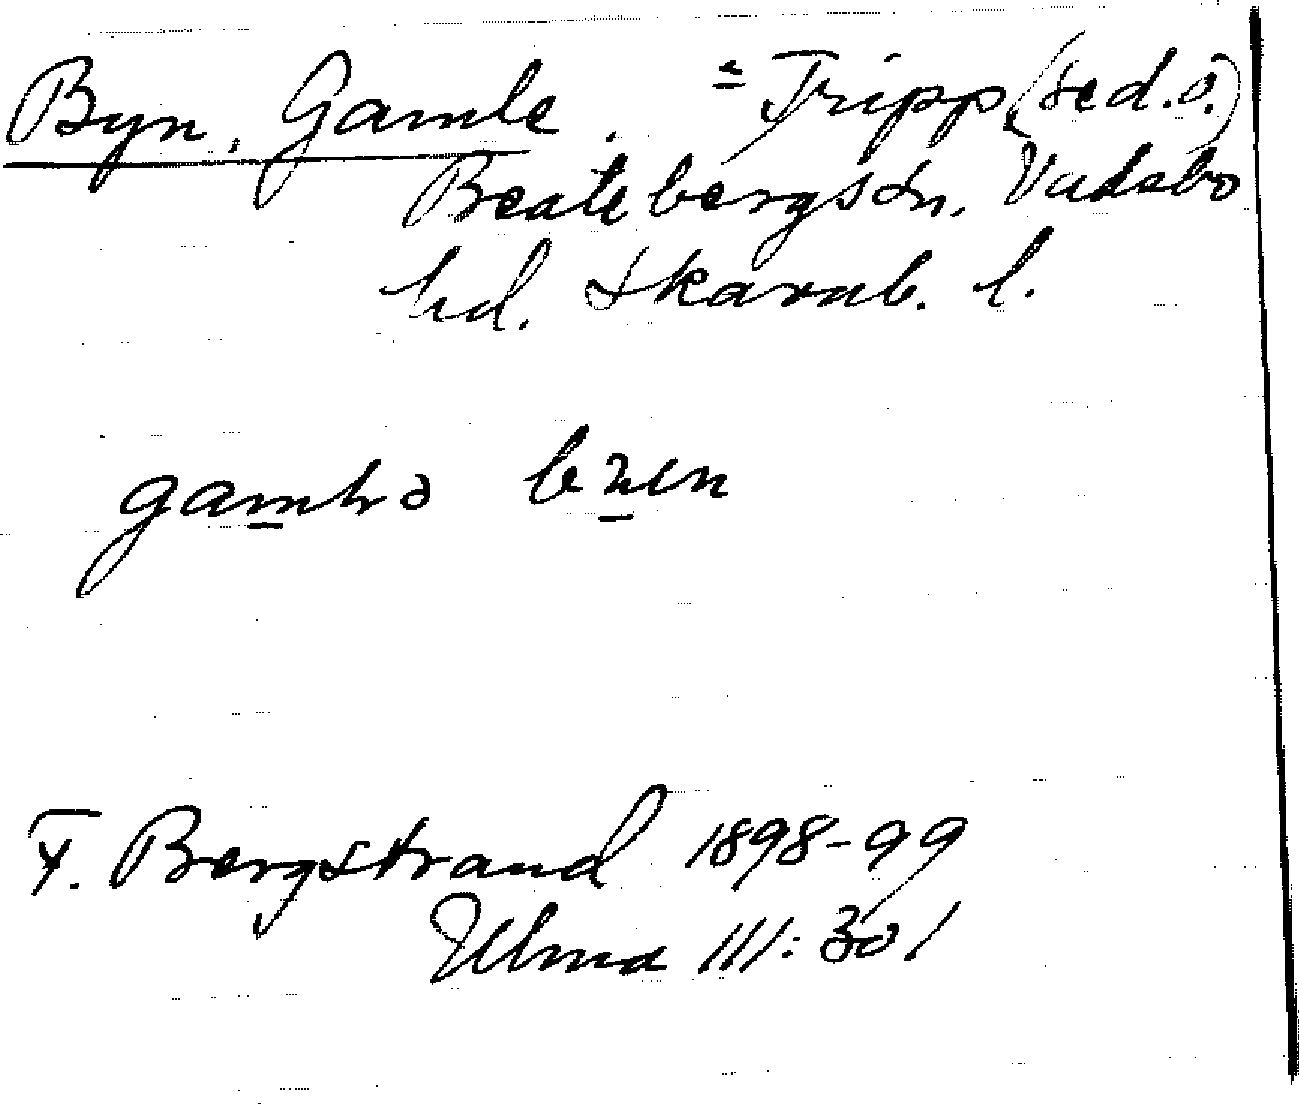 Byn, Gamle. = Tripp (se d.o.)
Beatebergs sn, Vadsbo
hd. Skarab. l.
F. Bergstrand 1898-99
Ulma 111:301